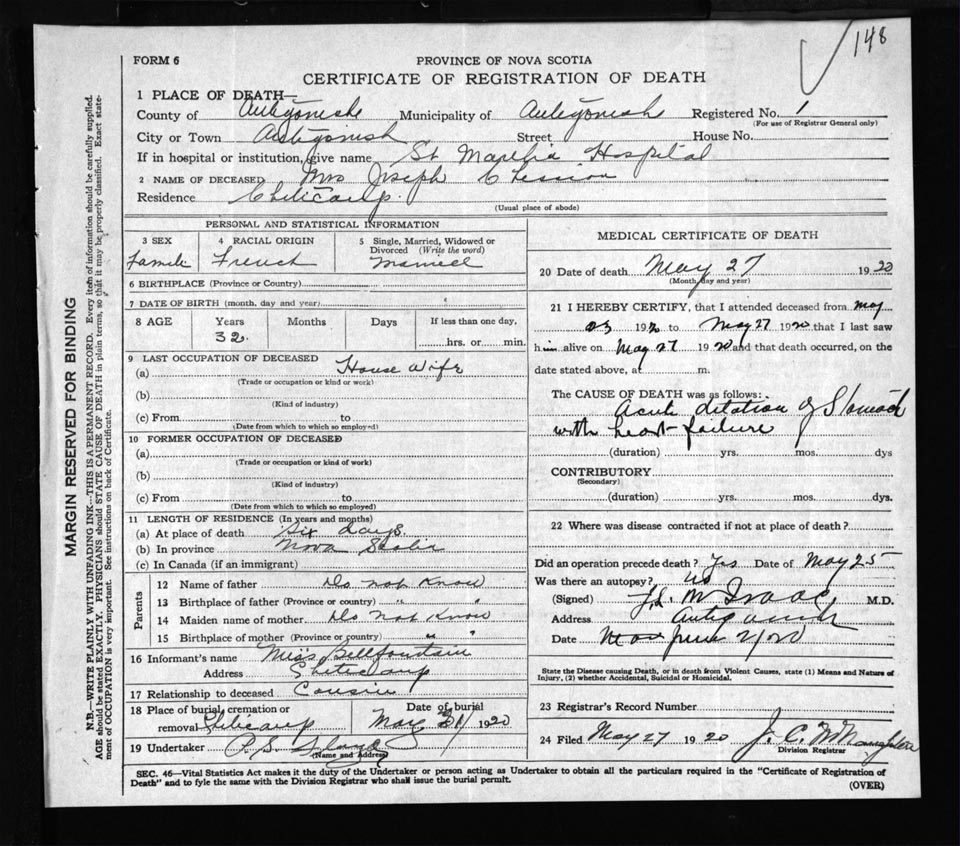 148
FORM 6
PROVINCE OF NOVA SCOTIA
CERTIFICATE OF REGISTRATION OF DEATH
1 PLACE OF DEATH—
County of Antigonish Municipality of Antigonish Registered No. 1
(For use of Registrar General only)
City or Town Antigonish Street House No.
If in hospital or institution, give name St Martha Hospital
2 NAME OF DECEASED Mrs Joseph
Residence Cheticamp.
(Usual place of abode)
PERSONAL AND STATISTICAL INFORMATION
3 SEX
Famile
4 RACIAL ORIGIN
French
5 Single, Married, Widowed or
Divorced (Write the word)
Married
6 BIRTHPLACE (Province or Country)
7 DATE OF BIRTH (month, day and year)
8 AGE
Years
32
Months
Days
If less than one day,
hrs. or min.
9 LAST OCCUPATION OF DECEASED
(a) House Wife
(Trade or occupation or kind or work)
(b)
(Kind of industry)
(c) From to
(Date from which to which so employed)
10 FORMER OCCUPATION OF DECEASED
(a)
(Trade or occupation or kind of work)
(b)
(Kind of industry)
(c) From to
(Date from which to which so employed)
11 LENGTH OF RESIDENCE (In years and months)
(a) At place of death Six days
(b) In province Nova Scotia
(c) In Canada (if an immigrant)
Parents
12 Name of father Do not Know
13 Birthplace of father (Province or country) " "
14 Maiden name of mother Do Not Know
15 Birthplace of mother (Province or country) " "
16 Informant's name Miss Bellfountain
Address Cheticamp
17 Relationship to deceased Cousin
18 Place of burial, cremation or
removal Cheticamp
Date of burial
May 31 1920
19 Undertaker
(Name and Address)
MEDICAL CERTIFICATE OF DEATH
20 Date of death May 27 1920
(Month, day and year)
21 I HEREBY CERTIFY, that I attended deceased from May
23 1920 to May 27 1920 that I last saw
him alive on May 27 1920 and that death occurred, on the
date stated above, at m.
The CAUSE OF DEATH was as follows:
Acute dilation of Stomach
with heart failure
(duration) yrs. mos. dys
CONTRIBUTORY
(Secondary)
(duration) yrs. mos. dys.
22 Where was disease contracted if not at place of death?
Did an operation precede death? Yes Date of May 25
Was there an autopsy? no
(Signed) M.D.
Address Antigonish
Date
State the Disease causing Death, or in death from Violent Causes, state (1) Means and Nature of
Injury, (2) whether Accidental, Suicidal or Homicidal.
23 Registrar's Record Number
24 Filed May 27 1920 J. C.
Division Registrar
SEC. 46—Vital Statistics Act makes it the duty of the Undertaker or person acting as Undertaker to obtain all the particulars required in the "Certificate of Registration of
Death" and to fyle the same with the Division Registrar who shall issue the burial permit.
(OVER)
MARGIN RESERVED FOR BINDING
N.B.—WRITE PLAINLY WITH UNFADING INK—THIS IS A PERMANENT RECORD. Every item of information should be carefully supplied.
AGE should be stated EXACTLY. PHYSICIANS should STATE CAUSE OF DEATH in plain terms, so that it may be properly classified. Exact state-
ment of OCCUPATION is very important. See instructions on back of Certificate.